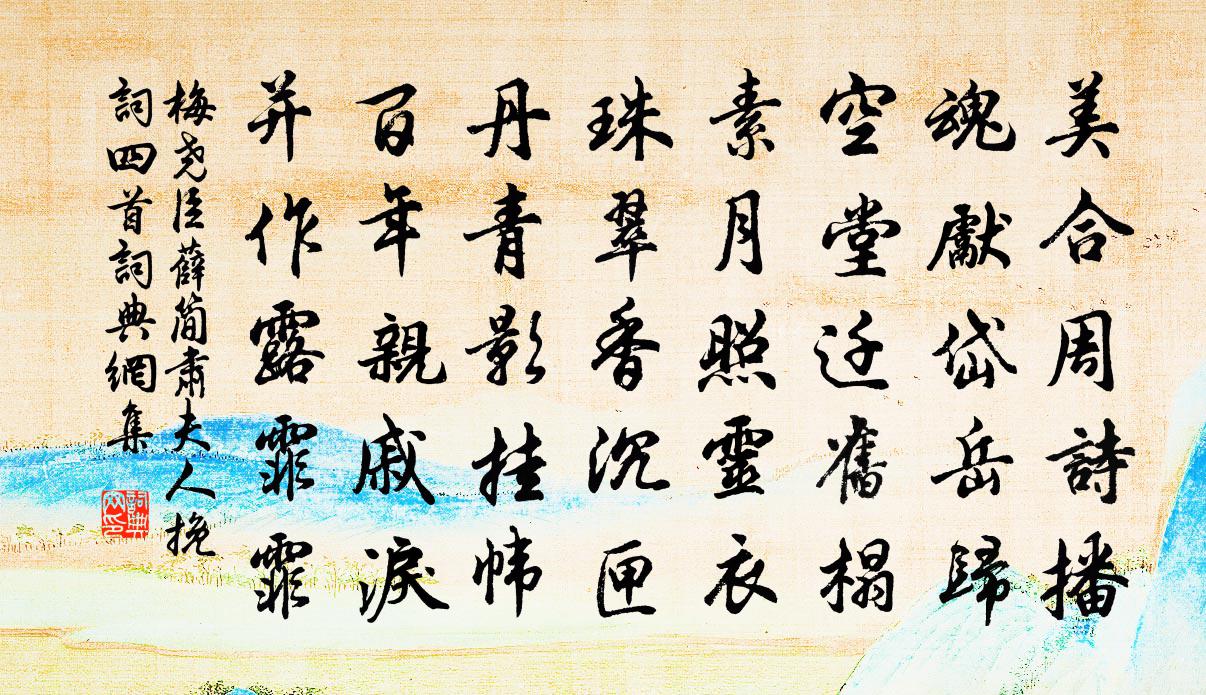 美合周詩播
魂獻岱岳歸
空堂迁舊榻
素月照靈衣
珠翠香沉匣
丹青影挂幃
百年親戚淚
并作露霏霏
梅堯臣薛簡肅夫人挽
詞四首詞典網集
詞典网印